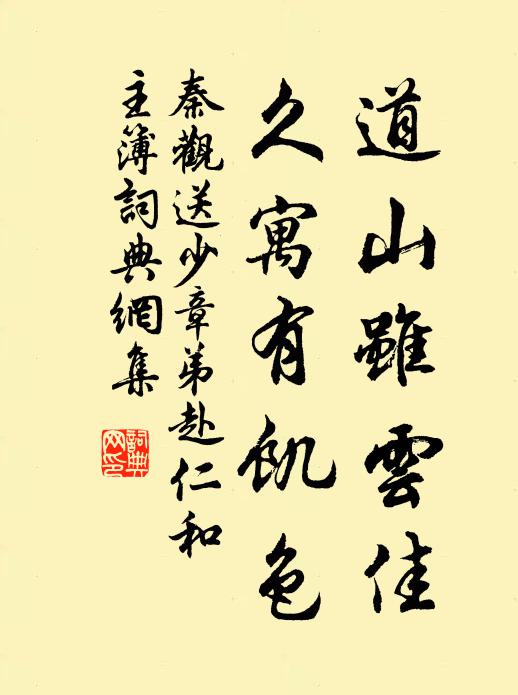 道山雖雲佳
久寓有飢色
秦觀送少章弟赴仁和
主簿詞典網集
詞典網印